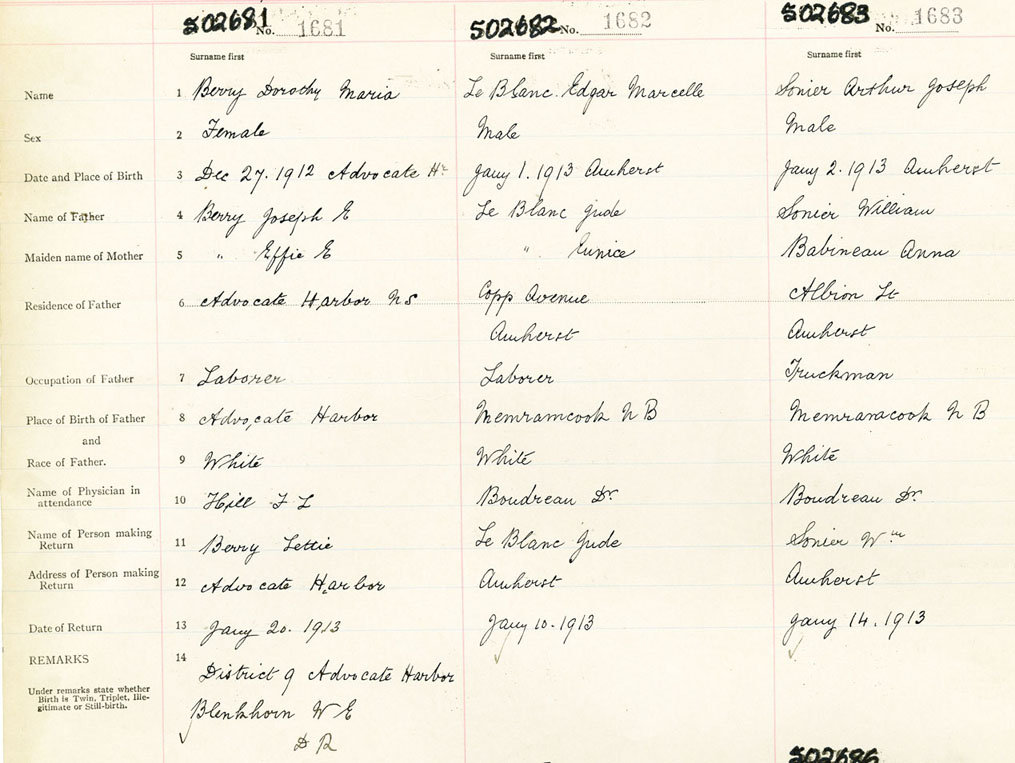 502681 502682 502683
No. 1681 No. 1682 No. 1683
Surname first Surname first Surname first
Name 1 Berry Dorothy Maria Le Blanc Edgar Marcelle Sonier Arthur Joseph
Sex 2 Female Male Male
Date and Place of Birth 3 Dec 27. 1912 Advocate Hr Jany 1. 1913 Amherst Jany 2. 1913 Amherst
Name of Father 4 Berry Joseph E Le Blanc Jude Sonier William
Maiden name of Mother 5 " Effie E " Eunice Babineau Anna
Residence of Father 6 Advocate Harbor NS Copp Avenue Albion St
Amherst Amherst
Occupation of Father 7 Laborer Laborer Truckman
Place of Birth of Father 8 Advocate Harbor Memramcook N B Memramcook N B
and
Race of Father. 9 White White White
Name of Physician in
attendance 10 Hill F L Boudreau Dr. Boudreau Dr.
Name of Person making
Return 11 Berry Lettie Le Blanc Jude Sonier Wm
Address of Person making
Return 12 Advocate Harbor Amherst Amherst
Date of Return 13 Jany 20. 1913 Jany 10. 1913 Jany 14. 1913
REMARKS 14
District 9 Advocate Harbor
Under remarks state whether
Birth is Twin, Triplet, Ille-
gitimate or Still-birth.
Blenkhorn W E
D R
502686